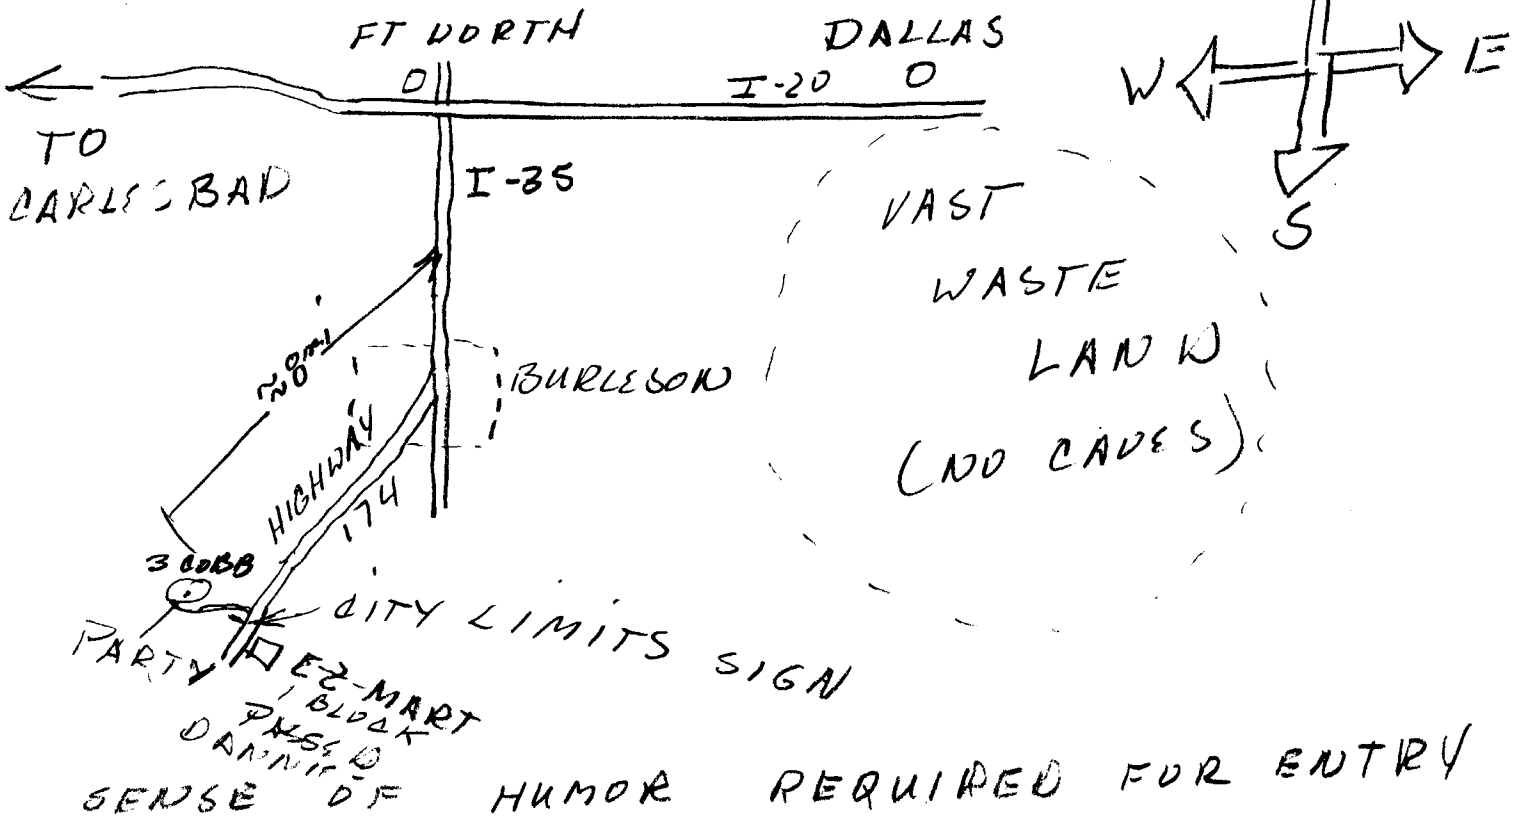 FT WORTH
DALLAS
I-20
W
E
S
TO
CARLSBAD
I-35
VAST
WASTE
LAND
(NO CAVES)
BURLESON
HIGHWAY
174
3 COBB
PARTY
CITY LIMITS SIGN
EZ-MART
1 BLOCK
PASSED
SENSE OF HUMOR REQUIRED FOR ENTRY